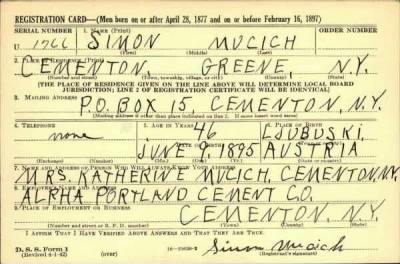 REGISTRATION CARD—(Men born on or after April 28, 1877 and on or before February 16, 1897)
SERIAL NUMBER 1. NAME (Print) ORDER NUMBER
U 1766 SIMON MUCICH
(First) (Middle) (Last)
2. PLACE OF RESIDENCE (Print)
CEMENTON, GREENE, N.Y.
(Number and street) (Town, township, village, or city) (County) (State)
[THE PLACE OF RESIDENCE GIVEN ON THE LINE ABOVE WILL DETERMINE LOCAL BOARD
JURISDICTION; LINE 2 OF REGISTRATION CERTIFICATE WILL BE IDENTICAL]
3. MAILING ADDRESS
P.O. BOX 15, CEMENTON, N.Y.
[Mailing address if other than place indicated on line 2. If same insert word same]
4. TELEPHONE 5. AGE IN YEARS 6. PLACE OF BIRTH
none 46 LJUBUSKI,
DATE OF BIRTH (Town or county)
JUNE 9 1895 AUSTRIA
(Exchange) (Number) (Mo.) (Day) (Yr.) (State or country)
7. NAME AND ADDRESS OF PERSON WHO WILL ALWAYS KNOW YOUR ADDRESS
MRS. KATHERINE MUCICH, CEMENTON, N.Y.
8. EMPLOYER'S NAME AND ADDRESS
ALPHA PORTLAND CEMENT CO.
9. PLACE OF EMPLOYMENT OR BUSINESS
CEMENTON, N.Y.
(Number and street or R. F. D. number) (Town) (County) (State)
I AFFIRM THAT I HAVE VERIFIED ABOVE ANSWERS AND THAT THEY ARE TRUE.
D. S. S. Form 1
(Revised 4-1-42) (over) Simon Mucich
(Registrant's signature)